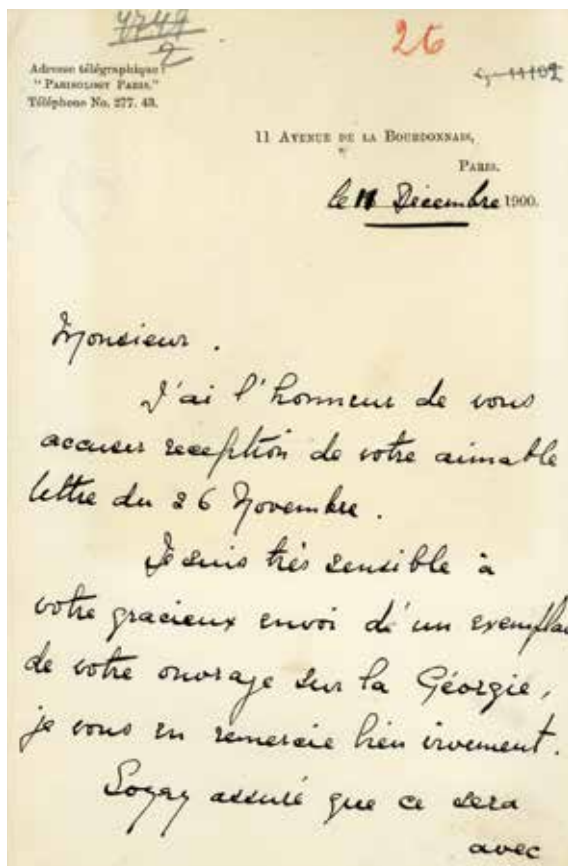 4749
2
26
Adresse télégraphique:
"PARISOLOGY PARIS."
Téléphone No. 277. 43.
11 AVENUE DE LA BOURDONNAIS,
PARIS.
le 11 Décembre 1900.
Monsieur.
J'ai l'honneur de vous
accuser reception de votre aimable
lettre du 26 Novembre.
Je suis très sensible à
votre gracieux envoi d'un exemplai
de votre ouvrage sur la Géorgie,
je vous en remercie bien vivement.
Soyez assuré que ce sera
avec